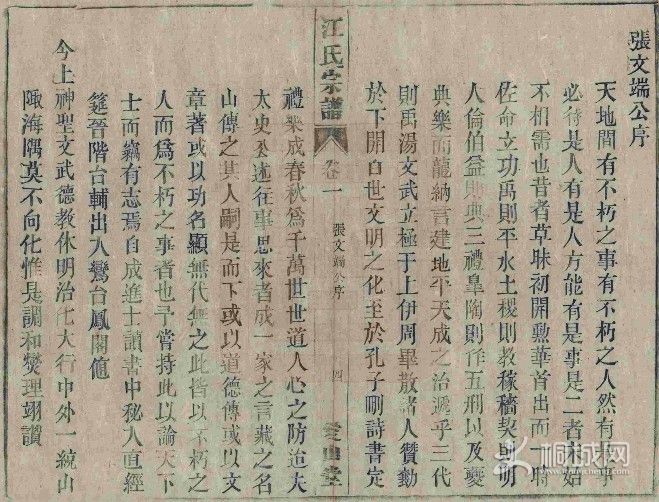 張文端公序
天地間有不朽之事有不朽之人然有是事
必待是人有是人方能有是事是二者未始
不相需也昔者草昧初開勲華首出而一時
佐命立功禹則平水土稷則教稼穡契則明
人倫伯益則典三禮皋陶則作五刑以及夔
典樂而龍納言建地平天成之治遞乎三代
則禹湯文武立極于上伊周畢散諸人贊勷
於下開百世文明之化至於孔子刪詩書定
江氏宗譜
卷一
張文端公序
四
山堂
禮樂成春秋為千萬世世道人心之防迨夫
太史公述往事思來者成一家之言藏之名
山傳之其人嗣是而下或以道德傳或以文
章著或以功名顯無代無之此皆以不朽之
人而為不朽之事者也予嘗持此以論天下
士而竊有志焉自成進士讀書中秘入直經
筵晉階台輔出入鸞台鳳閣値
今上神聖文武德教休明治化大行中外一統山
陬海隅莫不向化惟是調和燮理翊讚
桐城网